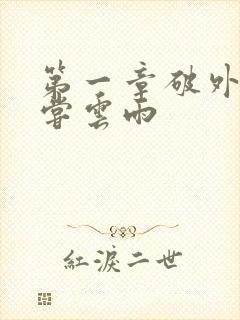 第一章破外
嘗雲雨
紅淚二世